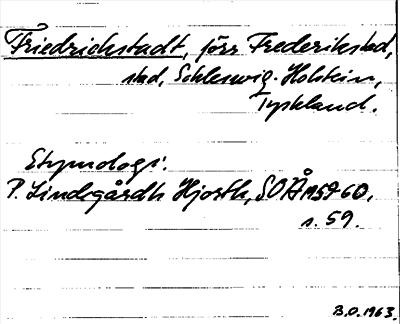 Friedrichstadt, förr Frederikstad,
stad, Schleswig-Holstein,
Tyskland.
Etymologi:
P. Lindegård Hjorth, SOÅ 1959-60,
s. 59.
B.O. 1963.